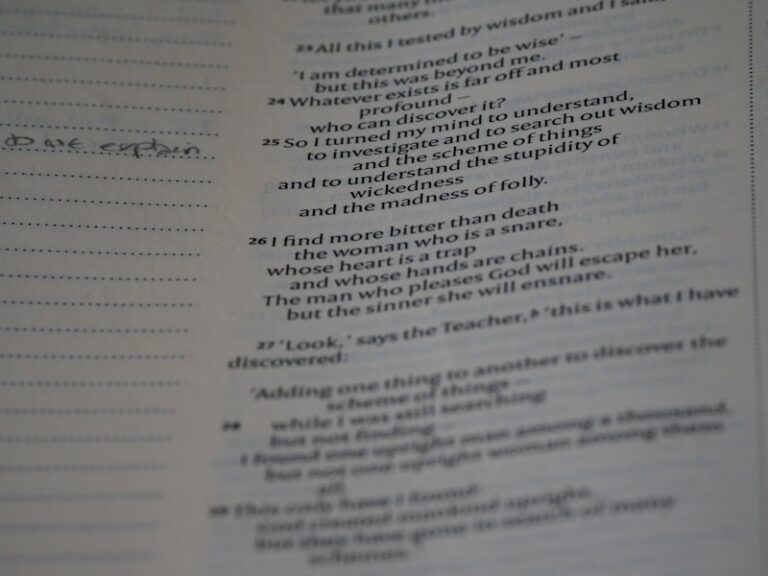 that many
others.
23 All this I tested by wisdom and I said,
'I am determined to be wise' –
but this was beyond me.
24 Whatever exists is far off and most
profound –
who can discover it?
25 So I turned my mind to understand,
to investigate and to search out wisdom
and the scheme of things
and to understand the stupidity of
wickedness
and the madness of folly.
26 I find more bitter than death
the woman who is a snare,
whose heart is a trap
and whose hands are chains.
The man who pleases God will escape her,
but the sinner she will ensnare.
27 'Look,' says the Teacher,b 'this is what I have
discovered:
'Adding one thing to another to discover the
scheme of things –
28 while I was still searching
but not finding –
I found one upright man among a thousand,
but not one upright woman among them
all.
29 This only have I found:
God created mankind upright,
but they have gone in search of many
schemes.
do we explain